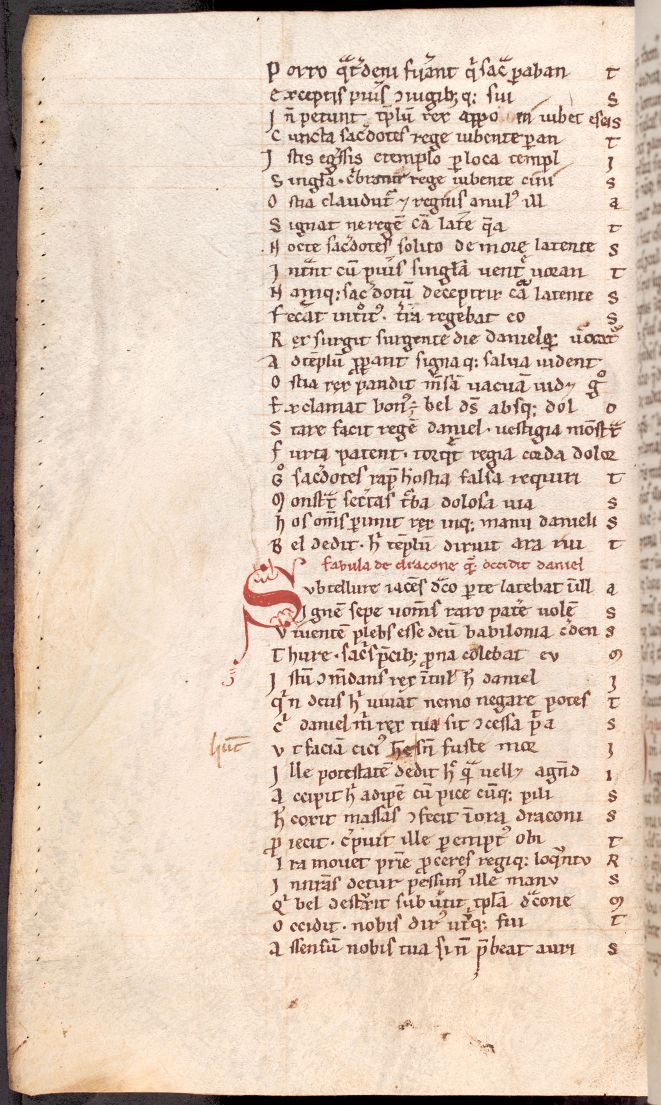 Porro q̄tdeni fuerant q̄ sac̄ paban t
Exceptis puis ɔiugib;q; sui s
In petunt tp̄lū rex iubet
Cuncta sac̄dotes rege iubente paran t
Istis egssis e templo p loca templ i
Singla rege iubente cini s
Ostia claudut̄ ⁊ regius anulꝰ ill a
Signat ne regē lat̄e q̄a t
Nocte sac̄dotes solito de more latente s
Int̄nt cū puis singlā uent̄ uoran t
Namq; sac̄dotū deceptrix latente s
Fec̄at int̄oitꝰ t̄ra regebat eo s
Rex surgit surgente die danielq; uocat̄
Ad tēplū ppant signaq; salua uident
Ostia rex pandit mēsā uacuā uid⁊
Exclamat bonꝰ bel ds̄ absq; dol o
Stare facit regē daniel. uestigia mōst̄t
Furta patent. torqt̄ regia corda dolor
sac̄dotes rap hostia falsa requiri t
Monst̄t sec̄tas t̄ba dolosa uia s
Hos om̄s pimit rex inq; manu danieli s
Bel dedit. h̄ tēplū diruit ara rui t
fabula de dracone q̄ occidit daniel
Sub tellure iacēs d̄co pte latebat ill a
Ignē sepe uom̄s raro patē uolē s
Viuentē plebs esse deū babilonia c̄den s
Thure. sac̄s p̄cib; prona colebat eu m
Istū ɔm̄dans rex h̄ daniel i
q̄ n̄ deus h̄ uiuat nemo negare potes t
daniel m̄ rex tua sit ɔcessa p̄a s
hunc̄
Vt faciā ciciꝰ hūc sn̄ fuste mor i
Ille potestatē dedit h̄ q̄ uell⁊ agn̄d i
Accipit h̄ adipē cū pice cūq; pili s
H̄ coxit massas ɔfecit ī ora draconi s
Proiecit. ille pemptꝰ obi t
Ira mouet p̄rie proceres regiq; loqūntu r
In nr̄as detur pessimꝰ ille manu s
Qi bel dest̄xit subu̇tit tp̄la d̄cone m
Occidit. nobis dirꝰ ut̄q; fui t
Assensū nobis tua si n̄ p̄beat auri s